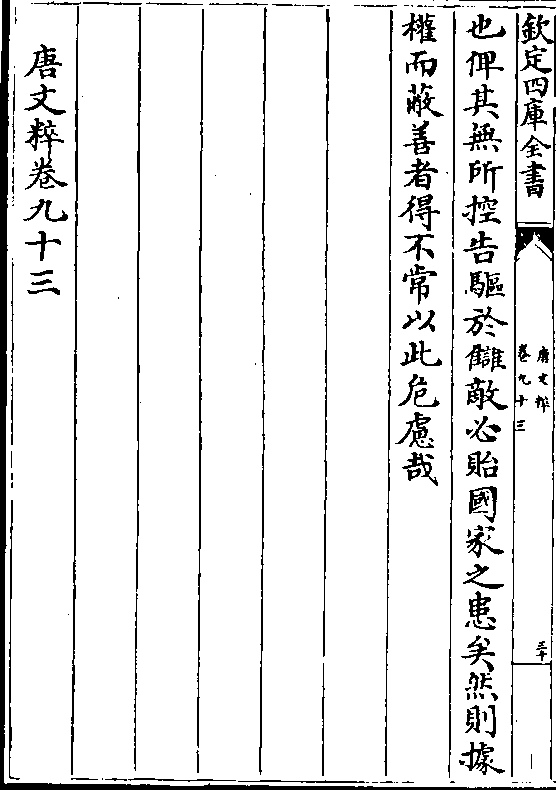 欽定四庫全書
唐文粹
卷九十三
三十
也俾其無所控告驅於讎敵必貽國家之患矣然則據
權而蔽善者得不常以此危慮哉
唐文粹卷九十三